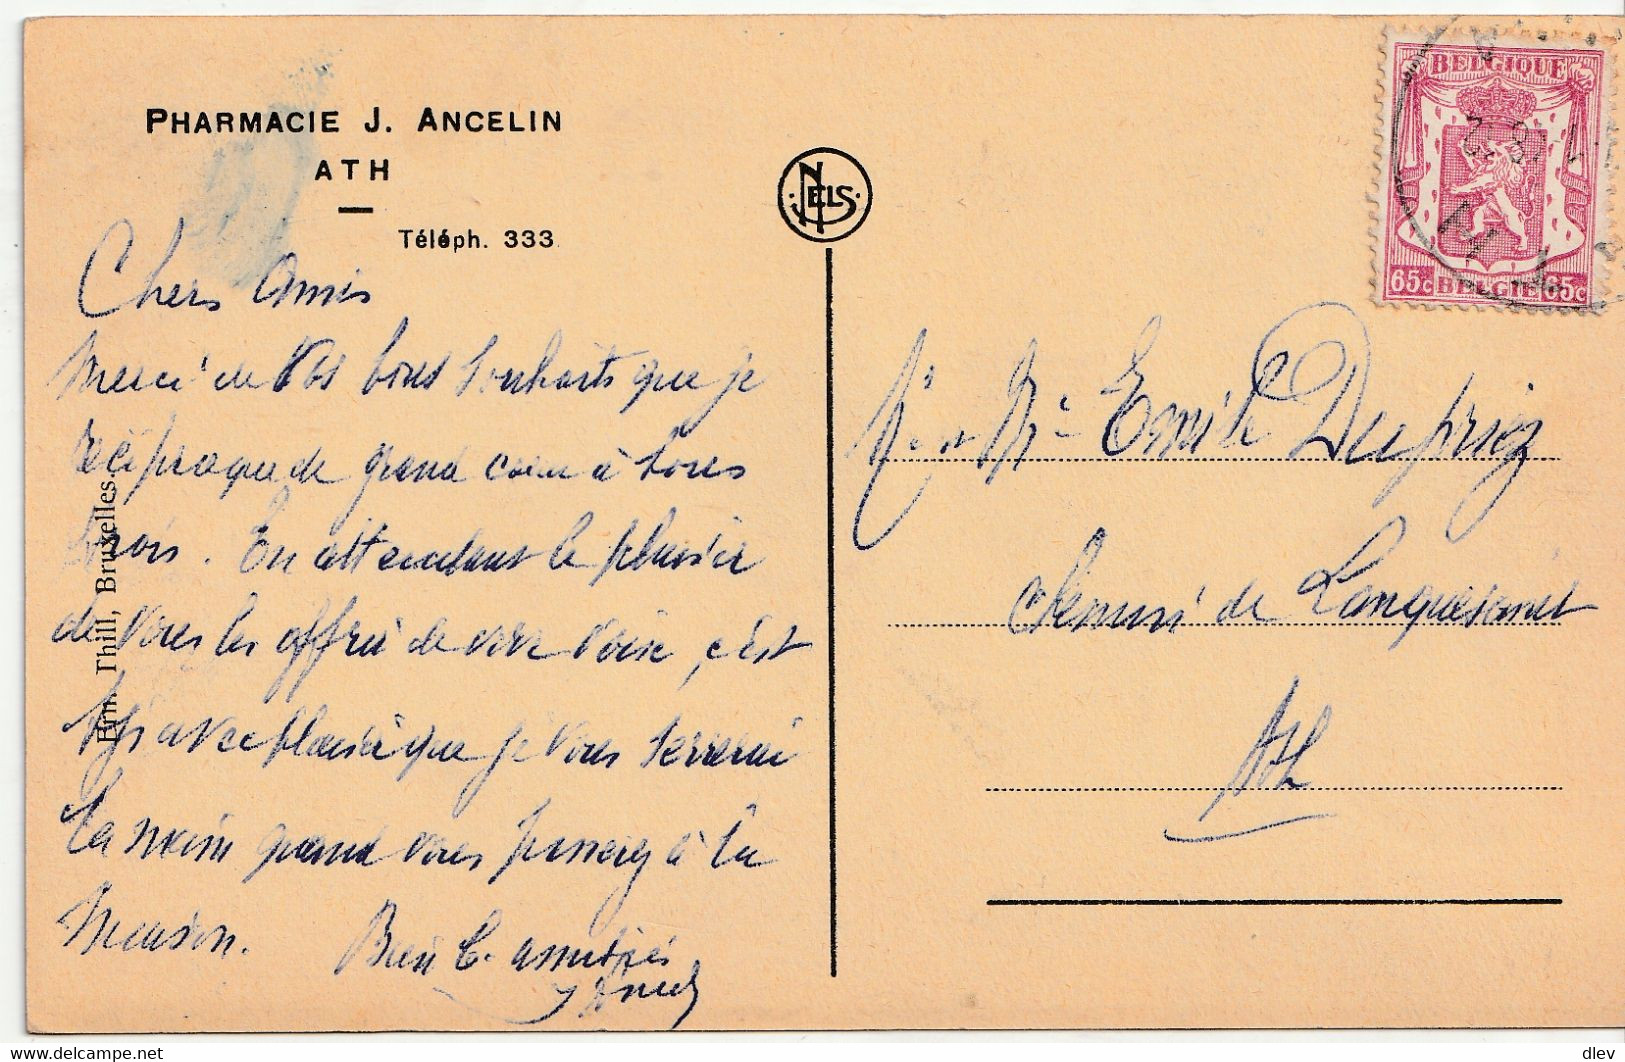 PHARMACIE J. ANCELIN
ATH
Téléph. 333
Chers Amis
Merci de Vos bons souhaits que je
réciproque de grand coeur à tous
trois. En attendant le plaisir
de vous les offrir de vive voix, c'est
avec plaisir que je vous serrerai
la main quand vous passerez à la
maison. Bien à. amitiés
NELS
Ern. Thill, Bruxelles.
BELGIQUE
65c BELGIE 65c
Mr et Me Emile Dupriez
Chemin de Languesaint
Ath
dlev